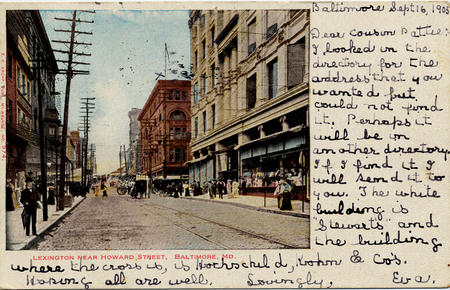 Baltimore Sept 16, 1905
Dear Cousin Battie:
I looked in the
directory for the
address that you
wanted but
could not find
it, Perhaps it
will be in
another directory
If I find it I
will send it to
you. The white
building is
"Stewarts" and
the building
LEXINGTON NEAR HOWARD STREET, BALTIMORE, MD.
where the cross is, is Hochschild, Kohn & Co's.
Hoping all are well. Lovingly, Eva.